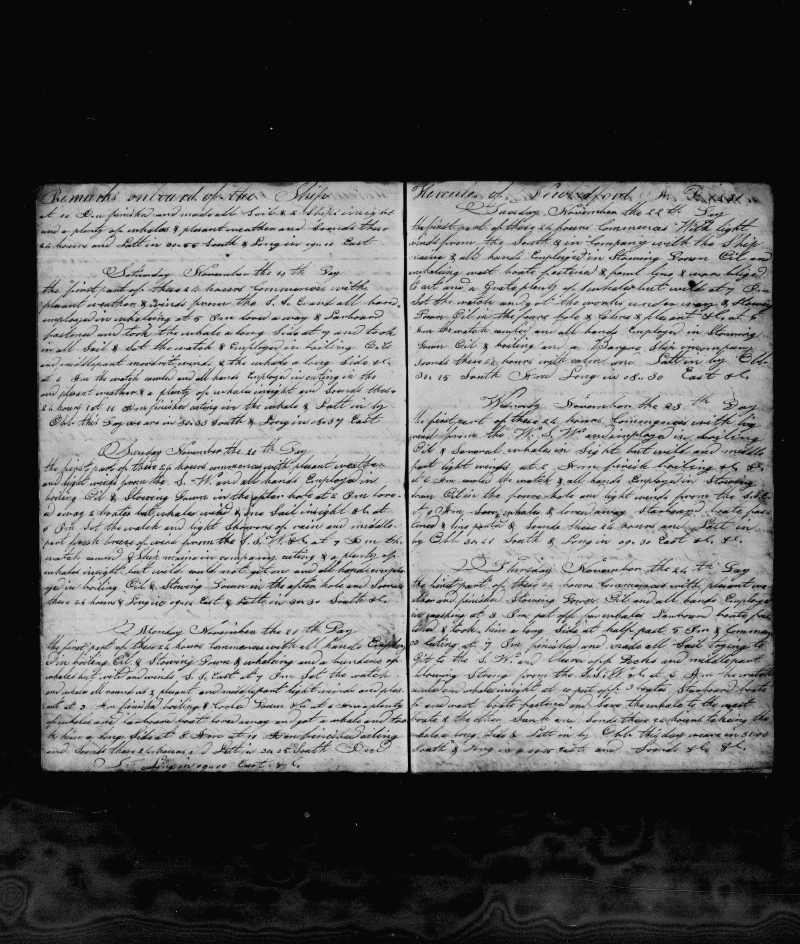 Remarks onboard of the Ship
at 10 Am finished and made all Sail & 2 Ships insight
and a plenty of whales & plesant weather and Sounds these
24 hours and Latt in 30.55 South & Long in 09.10 East
Saturday November the 19 th Day
the first part of these 24 hours commences with
plesant weather & winds from the S. E and all hands
employed in whaleing at 5 Pm lowed away & Larboard
fastened and took the whale a long Side at 7 and took
in all Sail & Sot the watch & Employed in boiling Oil
and middlepart moderit winds & the whale a long Side &c
at 6 Am the watch cauled and all hands Employed in cuting in the
and plesant weather & a plenty of whales insight and Sounds these
24 hours at 11 Am finished cuting in the whale & Latt in by
Obb this Day we are in 30.33 South & Long in 08.37 East
Sunday November the 20 th Day
the first part of these 24 hours commences with plesant weather
and light winds from the S. W. and all hands Employed in
boiling Oil & Stowing Down in the after hole at 2 Pm lowe
d away 2 boates but whales wild & one Sail insight &c at
6 Pm Sot the watch and light Showers of rain and middle
part fresh breses of wind from the S. S. W. &c at 7 Am the
watch cauled & Ship maria in company cuting & a plenty of
whales insight but wild could not get on and all hands employ
yed in boiling Oil & Stowing Down in the after hole and Sounds
these 24 hours & Long in 09.12 East & Latt in 30.30 South &c
Monday November the 21 th Day
the first part of these 24 hours Commences with all hands Employ
ed in boiling Oil & Stowing Down & whaleing and a hundred of
whales but wild and winds S. S. East at 7 Pm Sot the watch
and whale all round us & plesant and middlepart light winds and ples
ant at 3 Am finished boiling & Cooled Down &c at 6 Am a plenty
of whales and Larboard boat lowed away and got a whale and too
k him a long Side at 8 Am at 11 Am finished cuting
and Sounds these 24 hours and Latt in 30.25 South And
Long in 09.00 East &c &c
Hercules of Newbedford
Tuesday November the 22 th Day
the first part of these 24 hours Commences With light
winds from the South & in Company with the Ship
maria & all hands Employed in Stowing Down Oil and
whaleing west boate fastened & foul line & ware obliged
to cut and a Grate plenty of whales but wild at 7 Pm
Sot the watch and got the works under way & Stowing
Down Oil in the fore hole & Calms & plesant &c at 6
Am the watch cauled and all hands Employed in Stowing
Down Oil & boiling and a Ship in company
Sounds these 24 hours with calm and Latt in by Obb
30.15 South And Long in 08.30 East &c
Wednsday November the 23 th Day
the first part of these 24 hours Commences with lig
winds from the W. S. W. and employed in boiling
Oil & Several whales in Sight but wild and middle
part light winds at 2 Am finish boiling &c &c
at 6 Am cauled the watch & all hands Employed in Stowing
down Oil in the fore hole and light winds from the S.S.E
at 9 Am Saw whales & lowed away Starboard boate fas
tened & & Sounds these 24 hours and Latt in
by Obb 30.41 South & Long in 09.30 East &c &c
Thursday November the 24 th Day
the first part of these 24 hours Commences with plesant we
ather and finished Stowing Down Oil and all hands Employed
in at 3 Pm put off for whales Larboard boate fas
tened & took him a long Side at half past 5 Pm & Commenc
ed cuting at 7 Pm finished and made all Sail trying to
Git to the S. W. and Clewed off Decks and middlepart
blowing Strong from the S.S.E &c at 5 Am the watch
cauled and whales insight at 10 put off 3 boates Starboard boate
fas and west boate fastened and Gave the whale to the west
boate & the other Sank and Sounds these 24 hours taking the
whale a long Side & Latt in by Obb this day we are in 31.00
South & Long in 09.25 east and Sounds &c &c